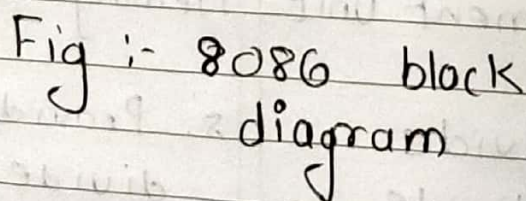 Fig :- 8086 block
diagram